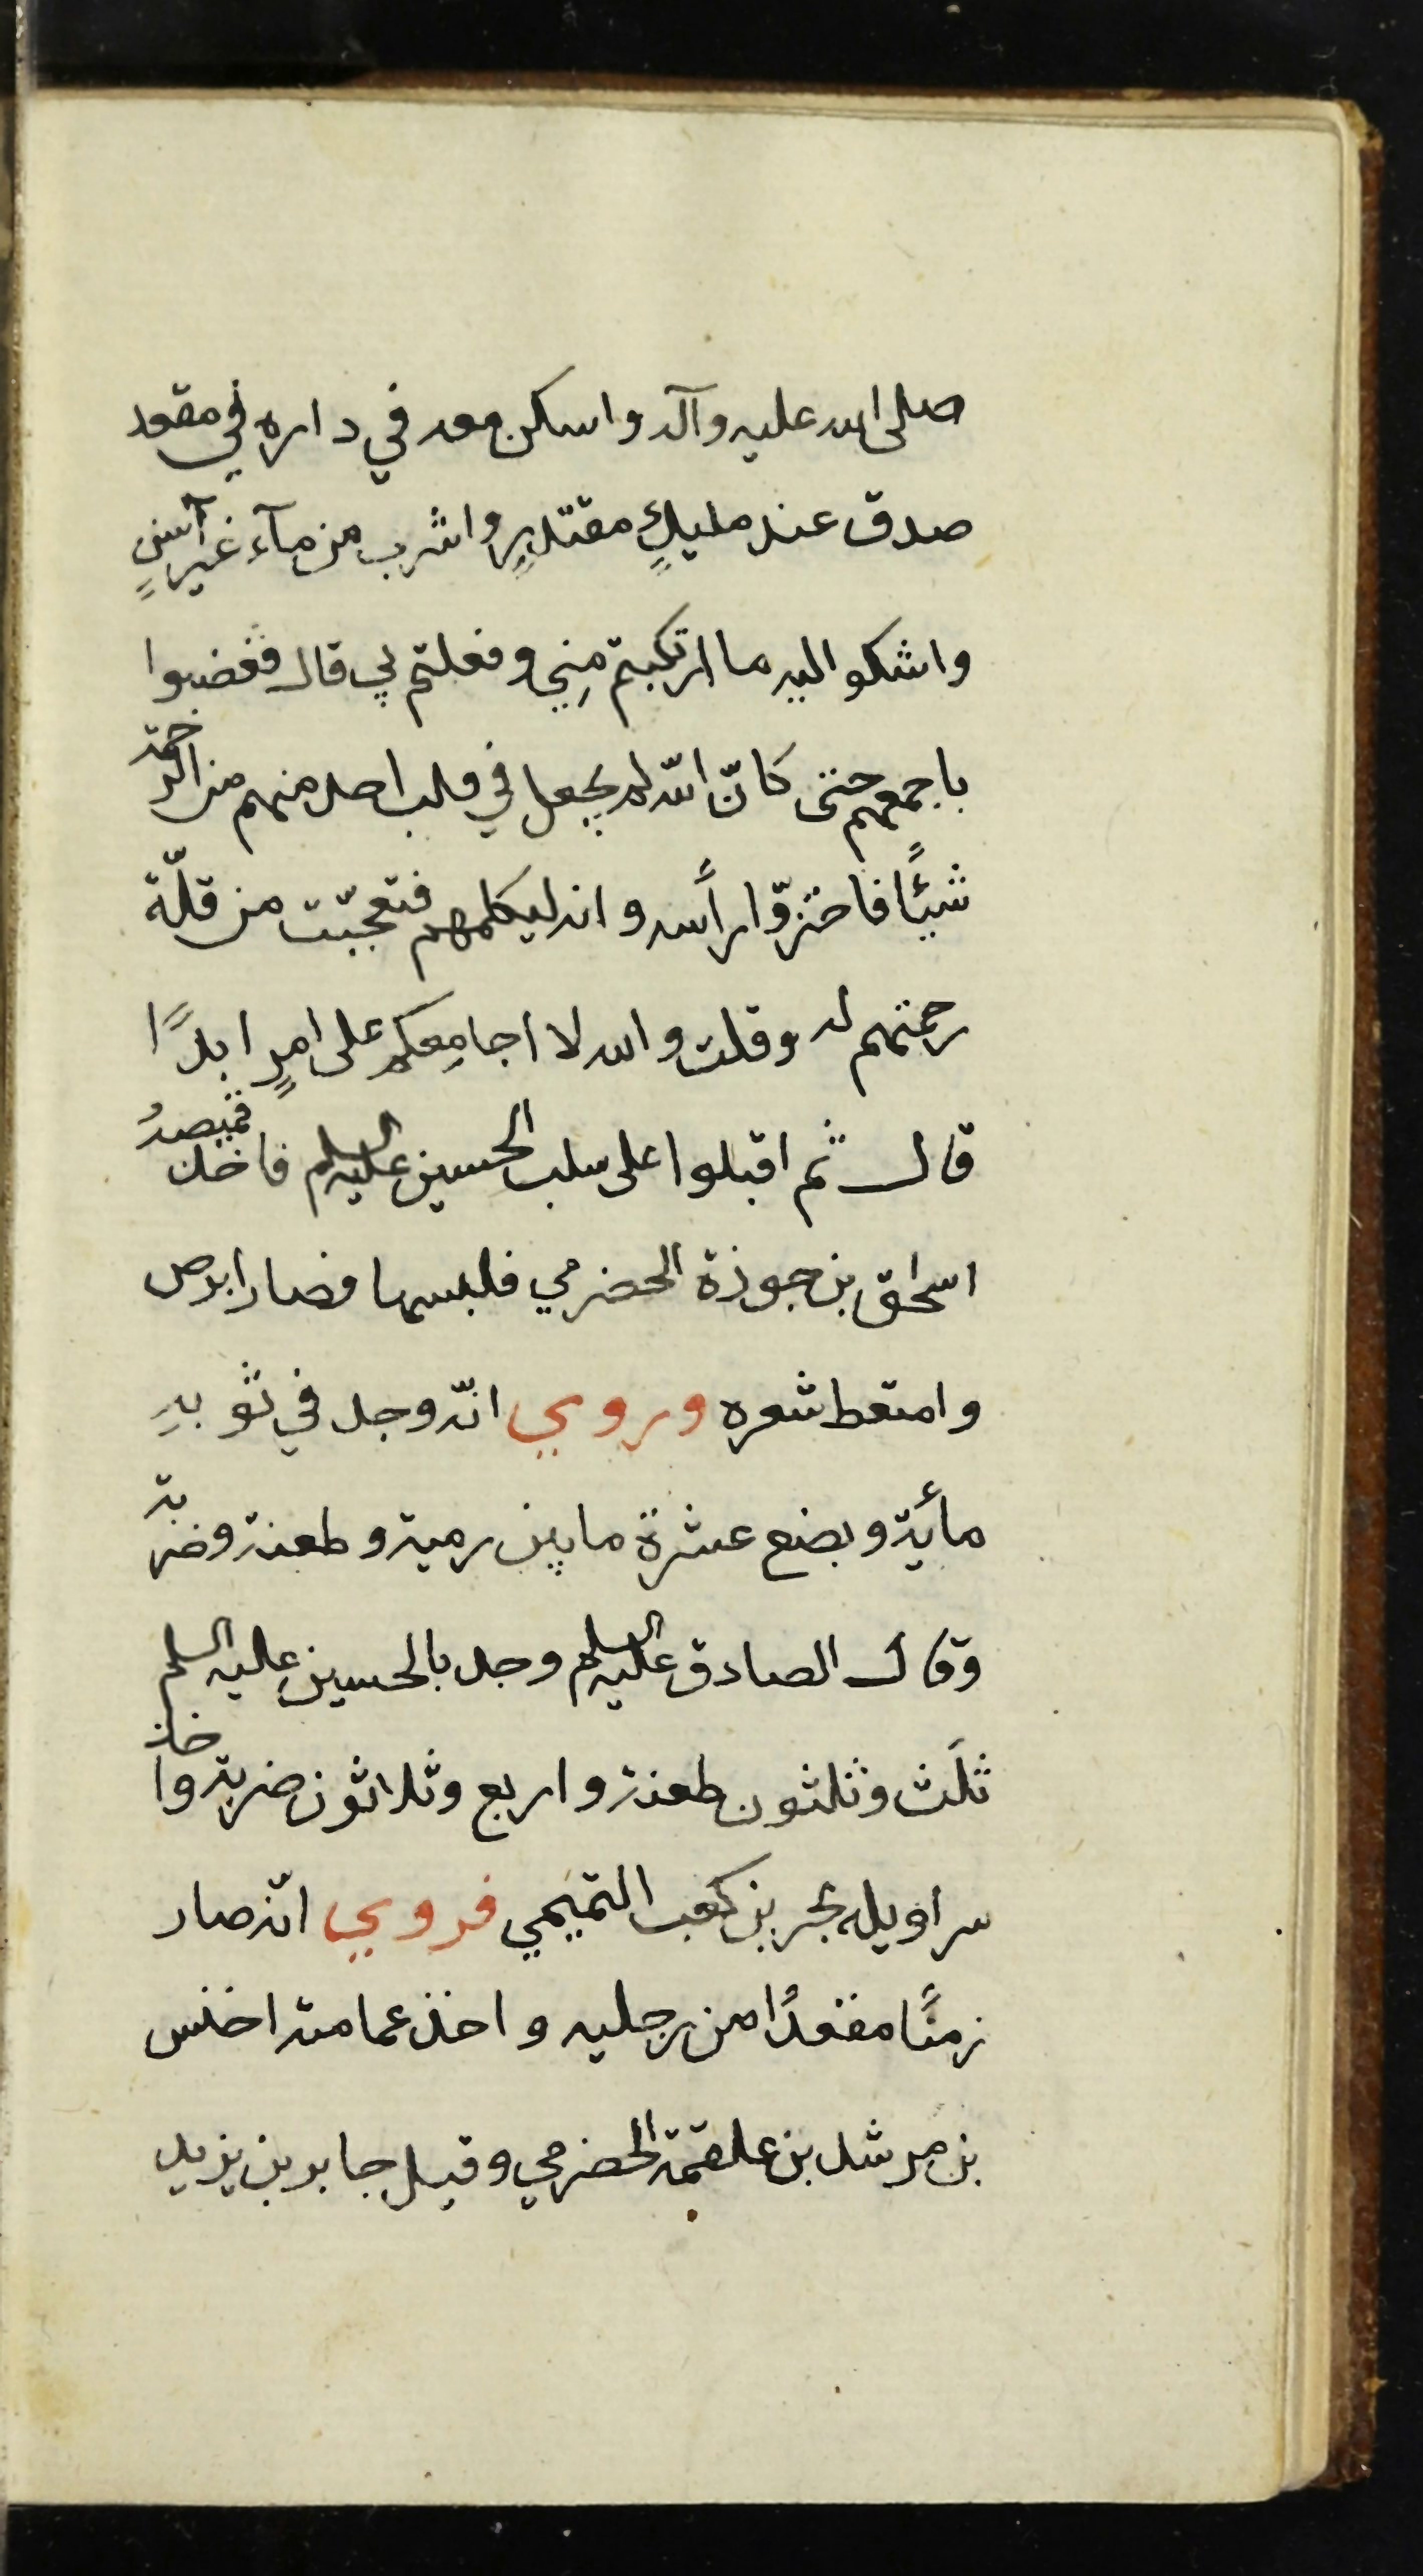 صلى الله عليه وآله واسكن معه في داره في مقعد
صدق عند مليكٍ مقتدرٍ واشرب من مآء غير آسنٍ
واشكو اليه ما ارتكبتم مِنِي وفعلتم بي قال فغضبوا
باجمعهم حتى كانّ اللّه لم يجعل في قلب احد منهم من الرحمة
شيئًا فاختزّوا رأسه وانه ليكلمهم فتعجّبت من قلّة
رحمتهم له وقلت والله لا اجامِعكم على امرٍ ابدًا
قال ثم اقبلوا على سلب الحسين عليه السلم فاخذ قميصهُ
اسحٰق بن حيوة الحضرمي فلبسها فصار ابرص
وامتعط شعره وروي انّه وجد في ثوبهِ
مأية وبضع عشرة ما بين رمية وطعنة وضربة
وقال الصادق عليه السلم وجد بالحسين عليه السلم
ثلَث وثلثون طعنة واربع وثلاثون ضربة واخذ
سراويله بحر بن كعب التميمي فروي انّه صار
زمنًا مقعدًا من رجليه واخذ عمامته اخنس
بن مرشد بن علقمة الحضرمي وقيل جابر بن يزيد